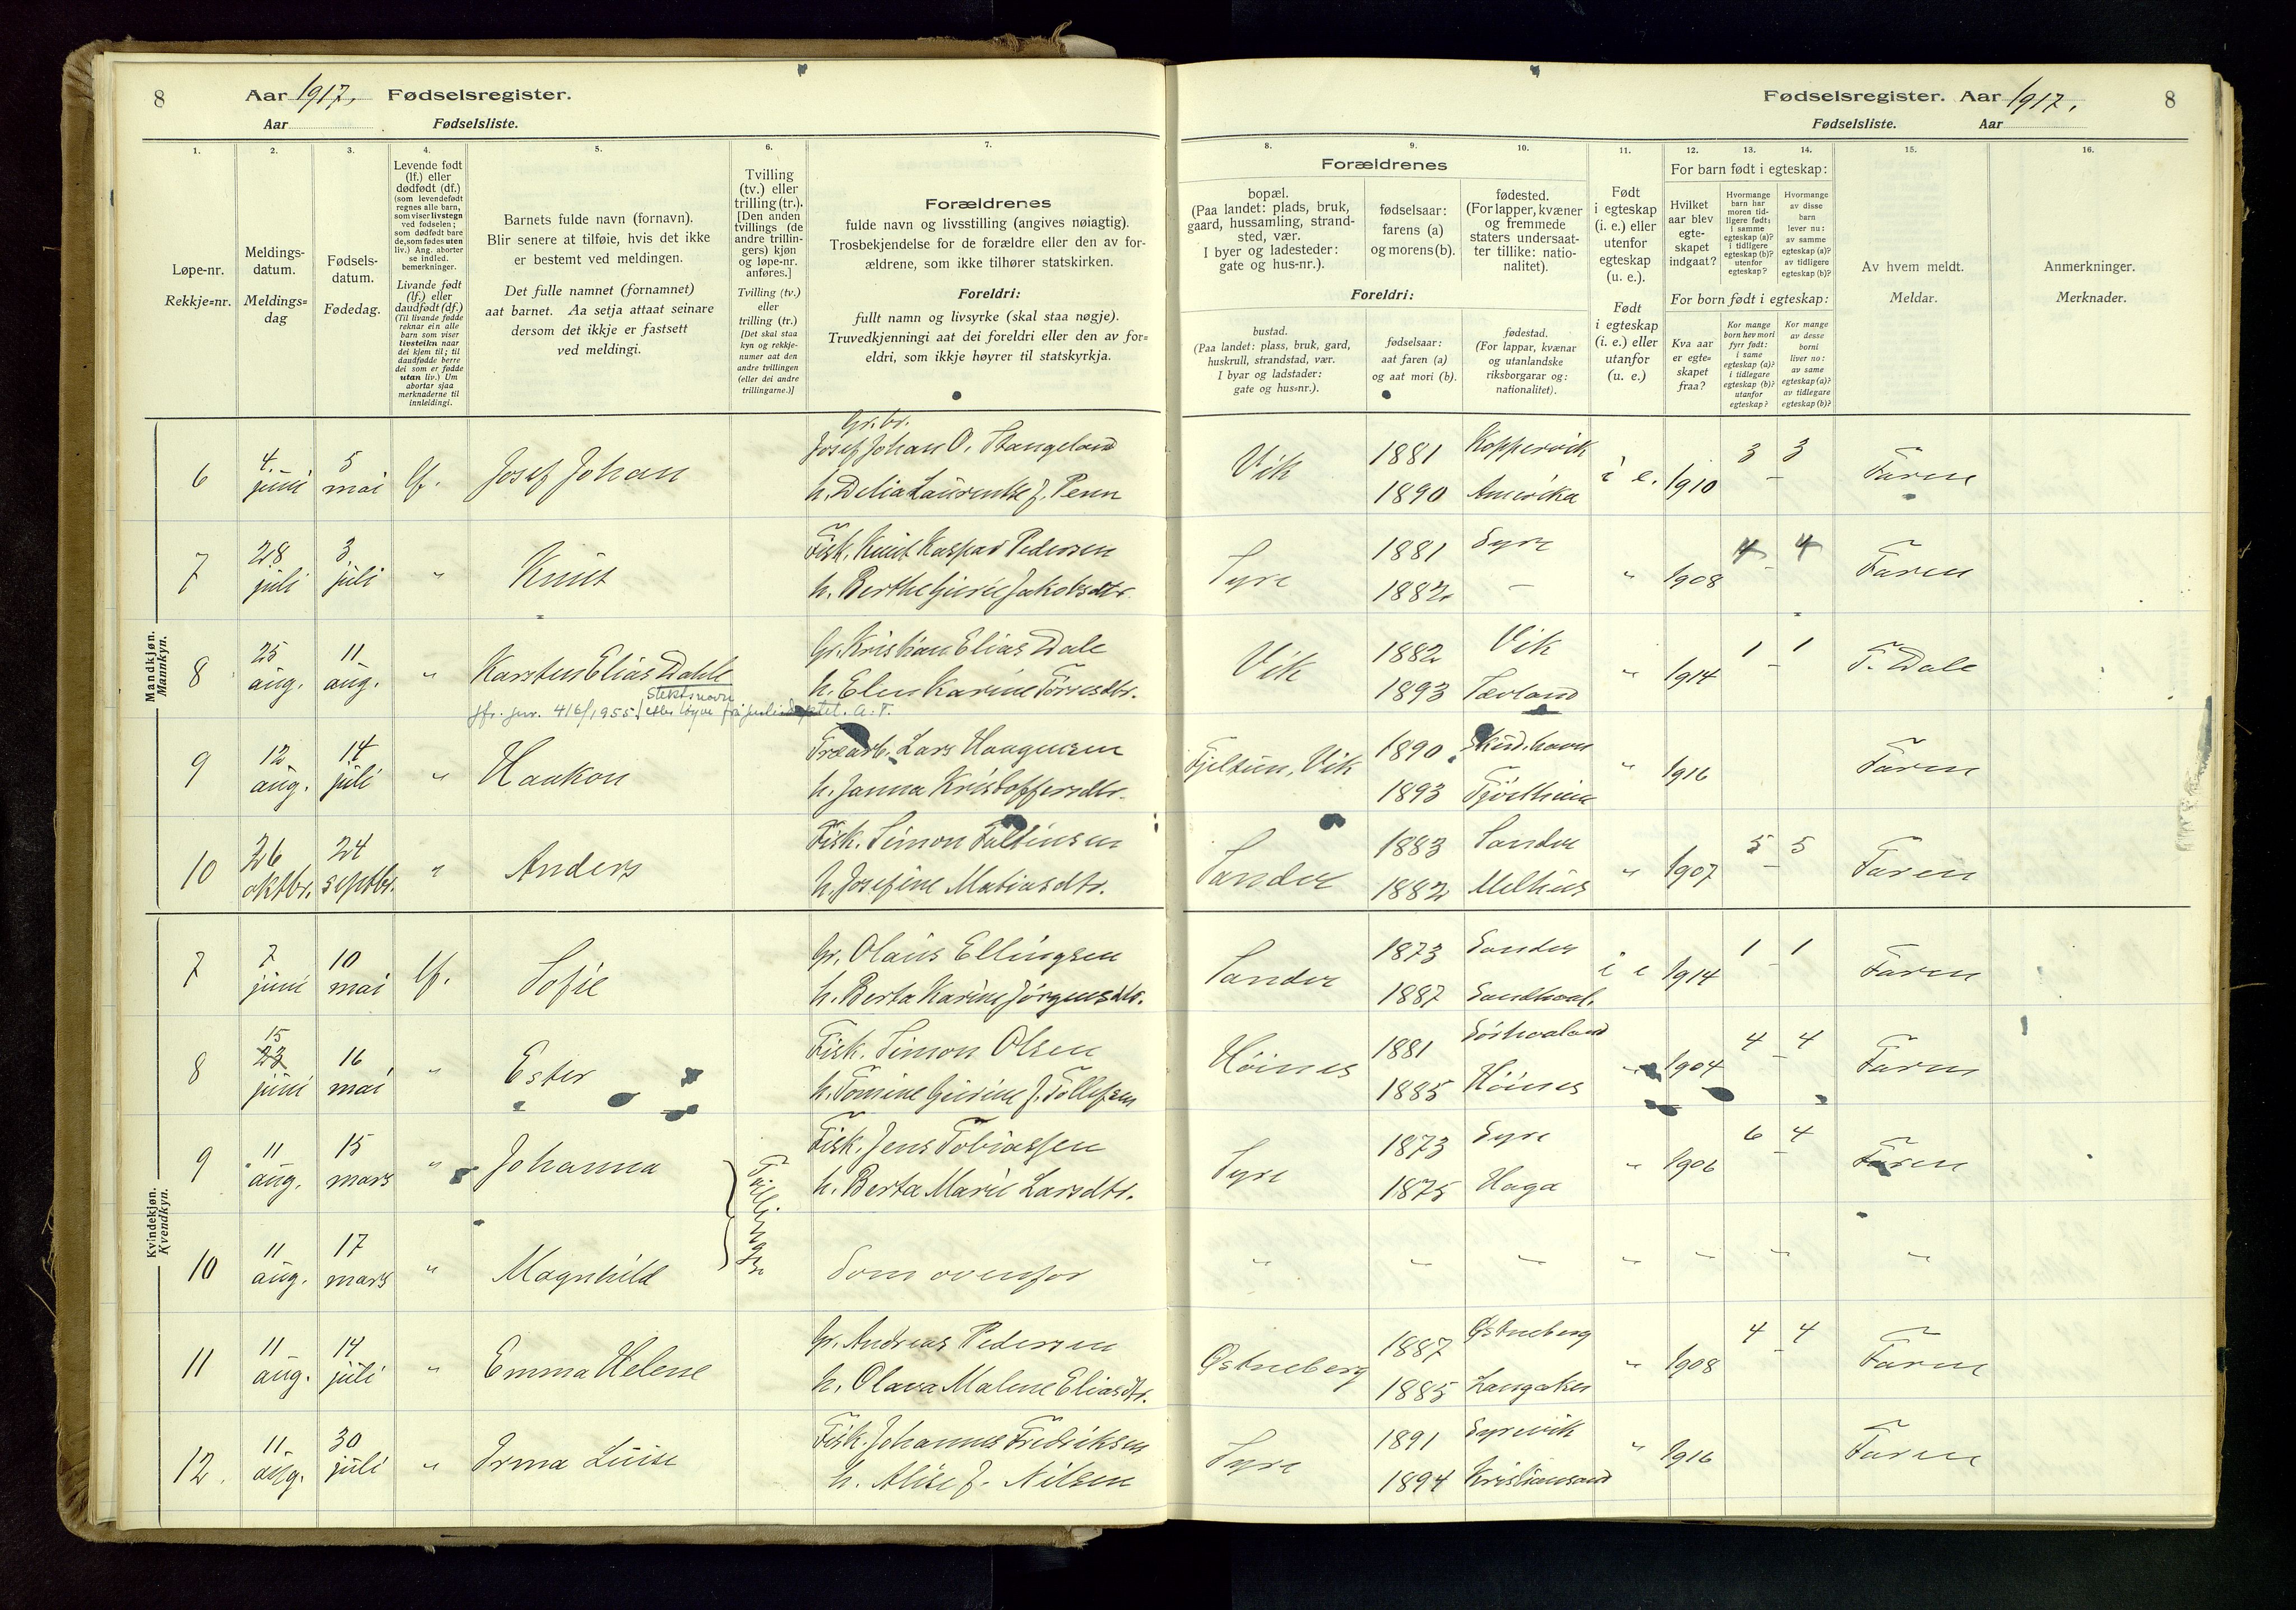 8 Aar 1917, Fødselsregister.
Aar Fødselsliste.
Fødselsregister. Aar 1917. 8
Fødselsliste. Aar
1. 2. 3. 4. 5. 6. 7. 8. 9. 10. 11. 12. 13. 14. 15. 16.
Løpe-nr.
Rekkje=nr.
Meldings-
datum.
Meldings=
dag
Fødsels-
datum.
Fødedag.
Levende født
(lf.) eller
dødfødt (df.)
(som levendefødt
regnes alle barn,
som viser livstegn
ved fødselen;
som dødfødt bare
de, som fødes uten
liv.) Ang. aborter
se indled.
bemerkninger.
Livande født
(lf.) eller
daudfødt (df.)
(Til livande fødde
reknar ein alle
barn som viser
livsteikn naar
dei kjem til; til
daudfødde berre
dei som er fødde
utan liv.) Um
abortar sjaa
merknaderne til
innleidingi.
Barnets fulde navn (fornavn).
Blir senere at tilføie, hvis det ikke
er bestemt ved meldingen.
Det fulle namnet (fornamnet)
aat barnet. Aa setja attaat seinare
dersom det ikkje er fastsett
ved meldingi.
Tvilling
(tv.) eller
trilling (tr.).
[Den anden
tvillings (de
andre trillin-
gers) kjøn
og løpe-nr.
anføres.]
Tvilling (tv.)
eller
trilling (tr.)
[Det skal staa
kyn og rekkje-
numer aat den
andre tvillingen
(eller dei andre
trillingarne.)]
Forældrenes
fulde navn og livsstilling (angives nøiagtig).
Trosbekjendelse for de forældre eller den av for-
ældrene, som ikke tilhører statskirken.
Foreldri:
fullt namn og livsyrke (skal staa nøgje).
Truvedkjenningi aat dei foreldri eller den av for=
eldri, som ikkje høyrer til statskyrkja.
Forældrenes
bopæl.
(Paa landet: plads, bruk,
gaard, hussamling, strand-
sted, vær.
I byer og ladesteder:
gate og hus-nr.).
fødselsaar:
farens (a)
og morens (b).
fødested.
(For lapper, kvæner
og fremmede
staters undersaat-
ter tillike: natio-
nalitet).
Foreldri:
bustad.
(Paa landet: plass, bruk, gard,
huskrull, strandstad, vær.
I byar og ladstader:
gate og hus=nr.).
fødselsaar:
aat faren (a)
og aat mori (b).
fødestad.
(For lappar, kvænar
og utanlandske
riksborgarar og:
nationalitet).
Født
i egteskap
(i. e.) eller
utenfor
egteskap
(u. e.).
Født
i egteskap
(i. e.) eller
utanfor
(u. e.)
For barn født i egteskap:
Hvilket
aar blev
egte-
skapet
indgaat?
Hvormange
barn har
moren tid-
ligere født:
i samme
egteskap (a)?
i tidligere
egteskap (b)?
utenfor
egteskap?
Hvormange
av disse
barn
lever nu:
av samme
egteskap (a)?
av tidligere
egteskap (b)?
For born født i egteskap:
Kva aar
er egte=
skapet
fraa?
Kor mange
born hev mori
fyrr født:
i same
egteskap (a)?
i tidlegare
egteskap (b)?
utanfor
egteskap?
Kor mange
av desse
borni
liver no:
av same
egteskap (a)?
av tidlegare
egteskap (b)?
Av hvem meldt.
Meldar.
Anmerkninger.
Merknader.
Mandkjøn.
Mannkyn.
6 4. juni 5 mai lf. Josef Johan Gr.br. Josef Johan O. Stangeland Vik 1881 Koppervik i e. 1910 3 – 3 Faren
h. Delia Laurentse f. Penn 1890 Amerika
7 28 juli 3 juli " Knut Fisk. Knut Kaspar Pedersen Syre 1881 Syre " 1908 4 – 4 Faren
h. Berthe Gurie Jakobsdtr. 1882 –
8 25 aug. 11 aug. " Karsten Elias Dahle Gr. Kristian Elias Dale Vik 1882 Vik " 1914 1 – 1 T. Dale
h. Elen Karine Torresdtr. 1893 Sævland
slektsnavn
jfr. jnr. 416/1955 etter løyve frå A.T.
9 12 aug. 14 juli " Haakon Træarb. Lars Haagensen Fjeltun, Vik 1890 Skud.havn " 1916 Faren
h. Janna Kristoffersdtr. 1893 Tjøstheim
10 26 oktbr. 24 septbr. " Anders Fisk. Simon Faltinsen Sandve 1883 Sandve " 1907 5 – 5 Faren
h. Josefine Matiasdtr. 1882 Melhus
Kvindekjøn.
Kvendkyn.
7 7 juni 10 mai lf. Sofie Gr. Olaus Ellingsen Sandve 1873 Sandve i e 1914 1 – 1 Faren
h. Berta Karine Jørgensdtr. 1887 Sandhaal.
8 15 23 juni 16 mai " Ester Fisk. Simon Olsen Høines 1881 Sørhaaland " 1904 4 – 4 Faren
h. Tomine Gurine f. Tollefsen 1885 Høines
9 11 aug. 15 mars " Johanna Tvillinger Fisk. Jens Tobiassen Syre 1873 Syre " 1906 6 – 4 Faren
h. Berta Marie Larsdtr. 1875 Haga
10 11 aug. 17 mars " Magnhild Som ovenfor " " " " " " "
11 11 aug. 14 juli " Emma Helene Gr. Andreas Pedersen Østneberg 1887 Østneberg " 1908 4 – 4 Faren
h. Olava Malene Eliasdtr. 1885 Langaker
12. 11 aug. 30 juli " Irma Luise Fisk. Johannes Fredriksen Syre 1891 Syrevik " 1916 Faren
h. Alise f. Nilsen 1894 Kristiansand